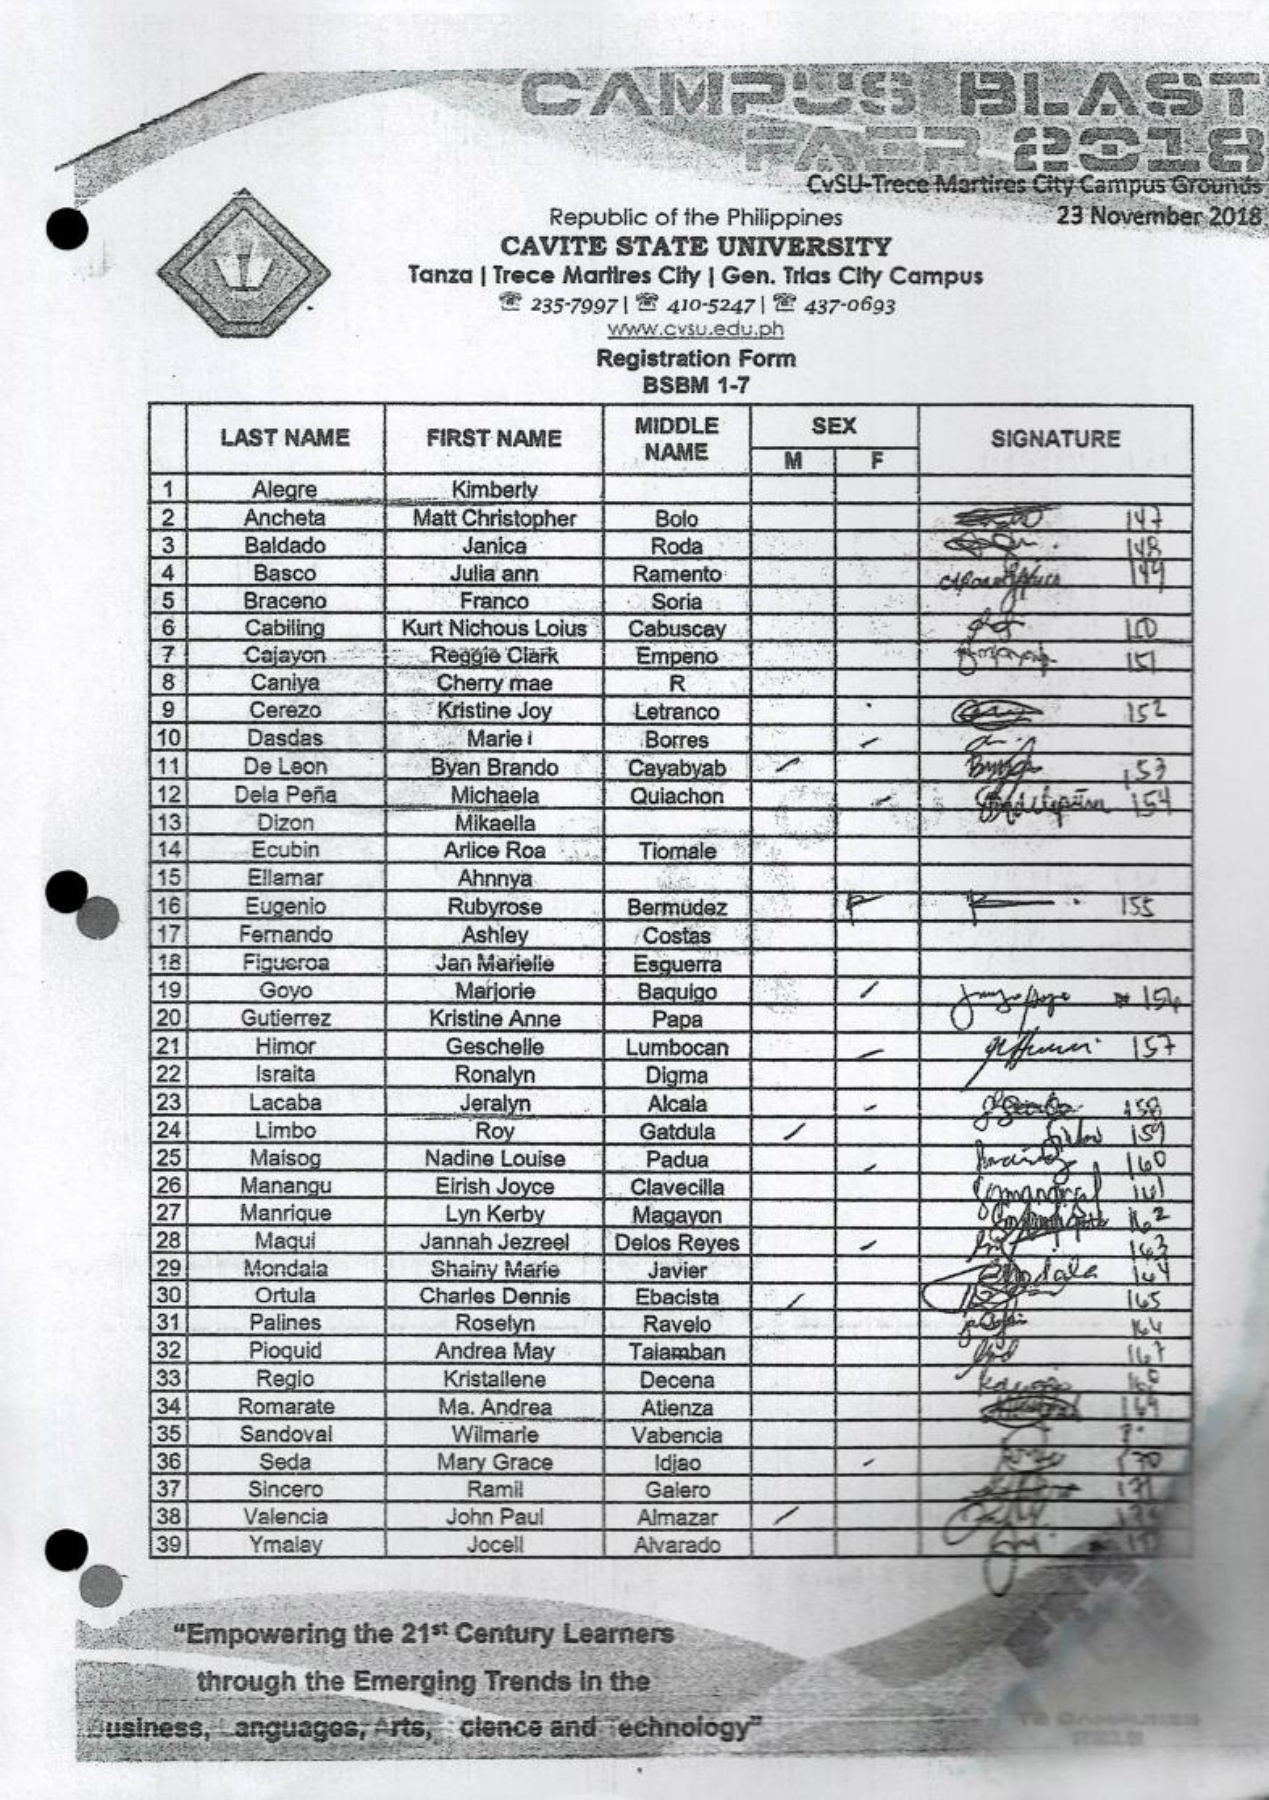 CAMPUS BLAST
FAIR 2018
CvSU-Trece Martires City Campus Grounds
23 November 2018
Republic of the Philippines
CAVITE STATE UNIVERSITY
Tanza | Trece Martires City | Gen. Trias City Campus
☏ 235-7997 | ☏ 410-5247 | ☏ 437-0693
www.cvsu.edu.ph
Registration Form
BSBM 1-7
LAST NAME FIRST NAME MIDDLE NAME SEX M F SIGNATURE
1 Alegre Kimberly
2 Ancheta Matt Christopher Bolo 147
3 Baldado Janica Roda 148
4 Basco Julia ann Ramento 149
5 Braceno Franco Soria
6 Cabiling Kurt Nichous Loius Cabuscay 150
7 Cajayon Reggie Clark Empeno 151
8 Caniya Cherry mae R
9 Cerezo Kristine Joy Letranco 152
10 Dasdas Marie i Borres
11 De Leon Byan Brando Cayabyab 153
12 Dela Peña Michaela Quiachon 154
13 Dizon Mikaella
14 Ecubin Arlice Roa Tiomale
15 Ellamar Ahnnya
16 Eugenio Rubyrose Bermudez F 155
17 Fernando Ashley Costas
18 Figueroa Jan Marielle Esguerra
19 Goyo Marjorie Baquigo 156
20 Gutierrez Kristine Anne Papa
21 Himor Geschelle Lumbocan 157
22 Israita Ronalyn Digma
23 Lacaba Jeralyn Alcala 158
24 Limbo Roy Gatdula 159
25 Maisog Nadine Louise Padua 160
26 Manangu Eirish Joyce Clavecilla 161
27 Manrique Lyn Kerby Magayon 162
28 Maqui Jannah Jezreel Delos Reyes 163
29 Mondala Shainy Marie Javier 164
30 Ortula Charles Dennis Ebacista 165
31 Palines Roselyn Ravelo 166
32 Pioquid Andrea May Talamban 167
33 Regio Kristallene Decena 168
34 Romarate Ma. Andrea Atienza 169
35 Sandoval Wilmarie Vabencia
36 Seda Mary Grace Idjao 170
37 Sincero Ramil Galero 171
38 Valencia John Paul Almazar
39 Ymalay Jocell Alvarado
“Empowering the 21st Century Learners
through the Emerging Trends in the
Business, Languages, Arts, Science and Technology”